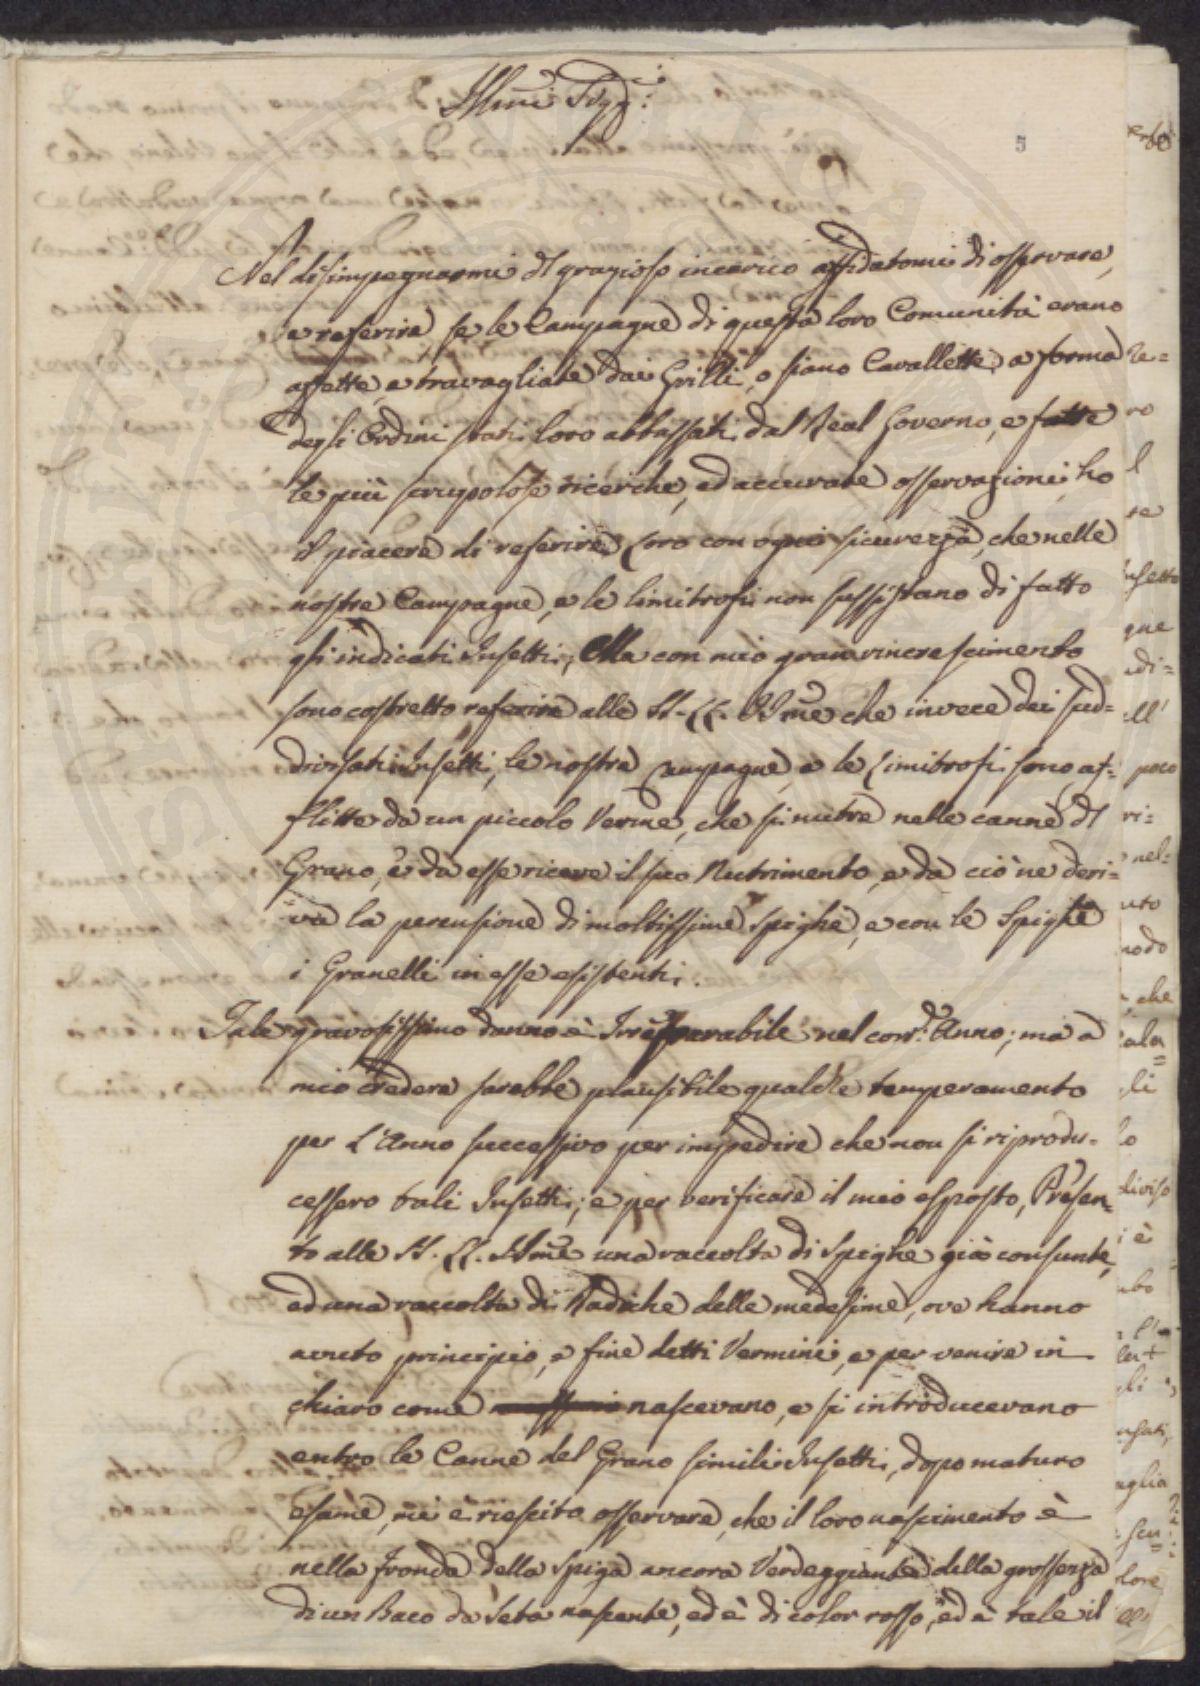 Illmi Sigg:ri
5
Nel disimpegnarmi dl grazioso incarico affidatomi di osservare,
e referire, se le Campagne di questa loro Comunità erano
affette, e travagliate dai Grilli, o siano Cavallette, a forma
degli Ordini stati loro abbassati dal Real Governo, e fatte
le più scrupolose ricerche, ed accurate osservazioni, ho
il piacere di referire Loro con ogni sicurezza, che nelle
nostre Campagne, e le limitrofi non sussistano di fatto
gli indicati Insetti; Ma con mio gran rincrescimento
sono costretto referire alle SS. LL. Illme che invece dei sud=
divisati Insetti, le nostre Campagne, e le Limitrofi sono af=
flitte da un piccolo Verme, che si nutre nelle canne dl
Grano, e da esse riceve il suo Nutrimento, e da ciò ne deri=
va la perensione di moltissime spighe, e con le Spighe
i Granelli in esse esistenti.
Tale gravosissimo danno è Irreparabile nel corr.e Anno; ma a
mio credere sarebbe plausibile qualche temperamento
per L'Anno successivo per impedire che non si riprodu=
cessero tali Insetti; e per verificare il mio esposto, Presen=
to alle SS. LL. Illme una raccolta di Spighe già consunte,
ed una raccolta di Radiche delle medesime, ove hanno
avuto principio, e fine detti Vermini, e per venire in
chiaro come nascevano, e si introducevano
entro le Canne del Grano simili Insetti, dopo maturo
Esame, mi è riescito osservare, che il loro nascimento è
nella fronda della spiga ancora Verdeggiante della grossezza
di un Baco da Seta nascente, ed è di color rosso, ed a tale il